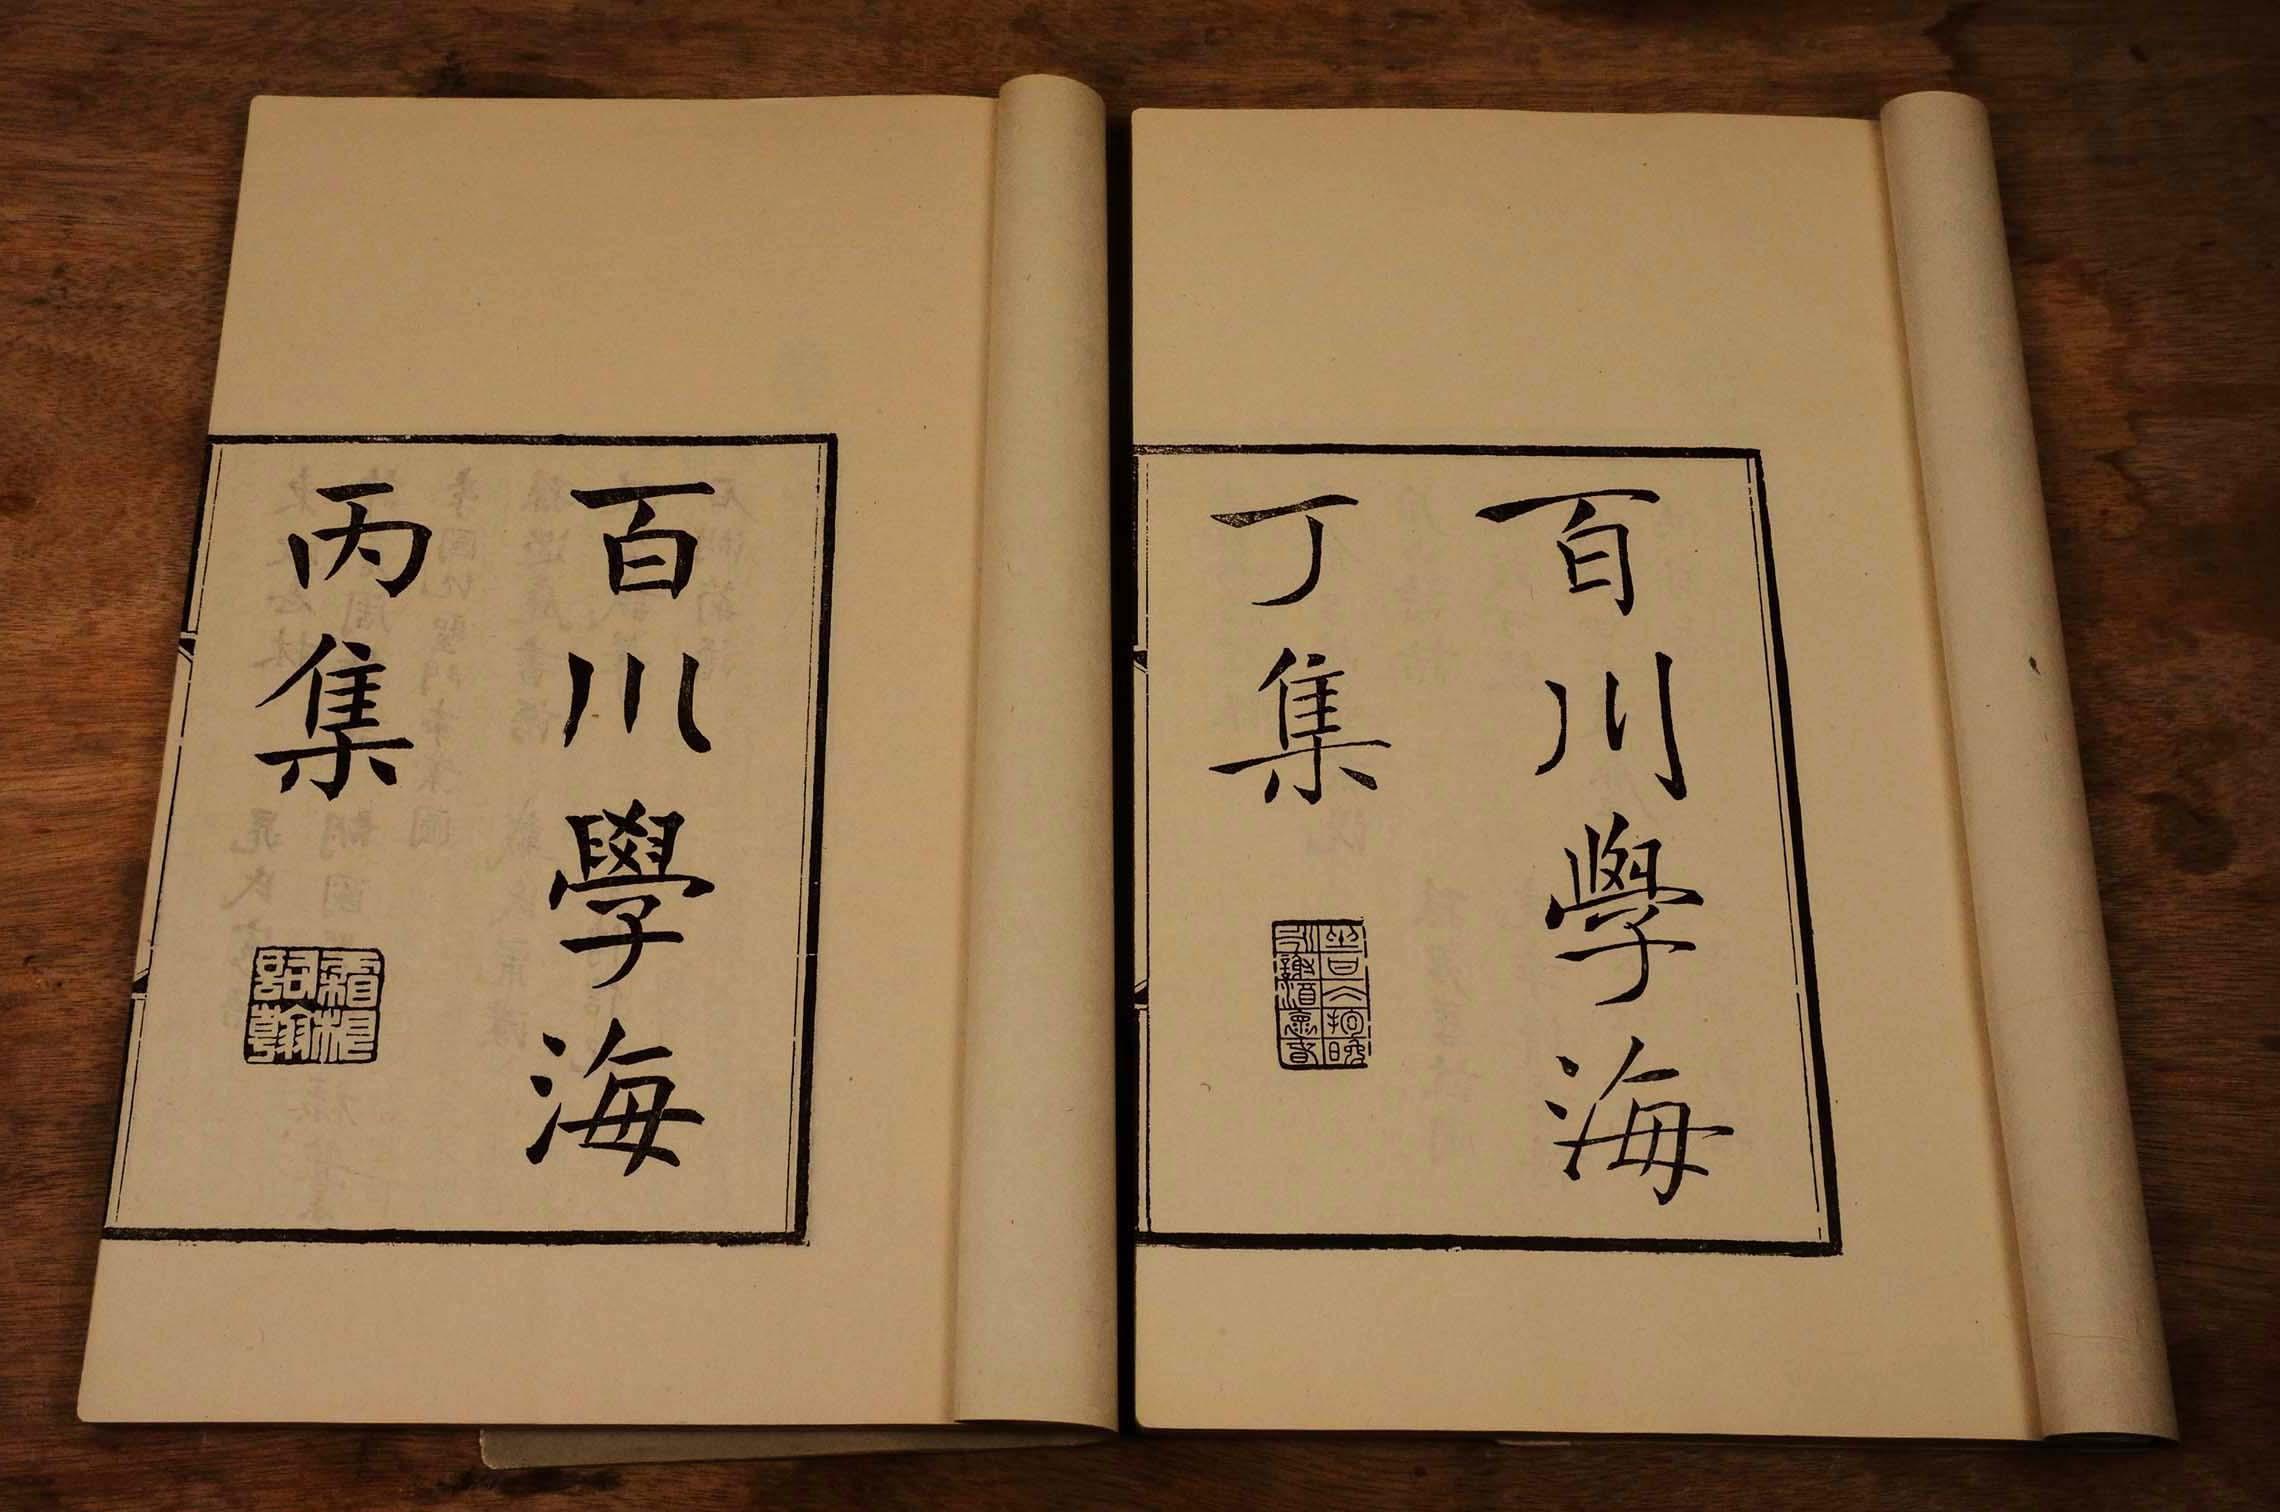 百川學海
丁集
百川學海
丙集